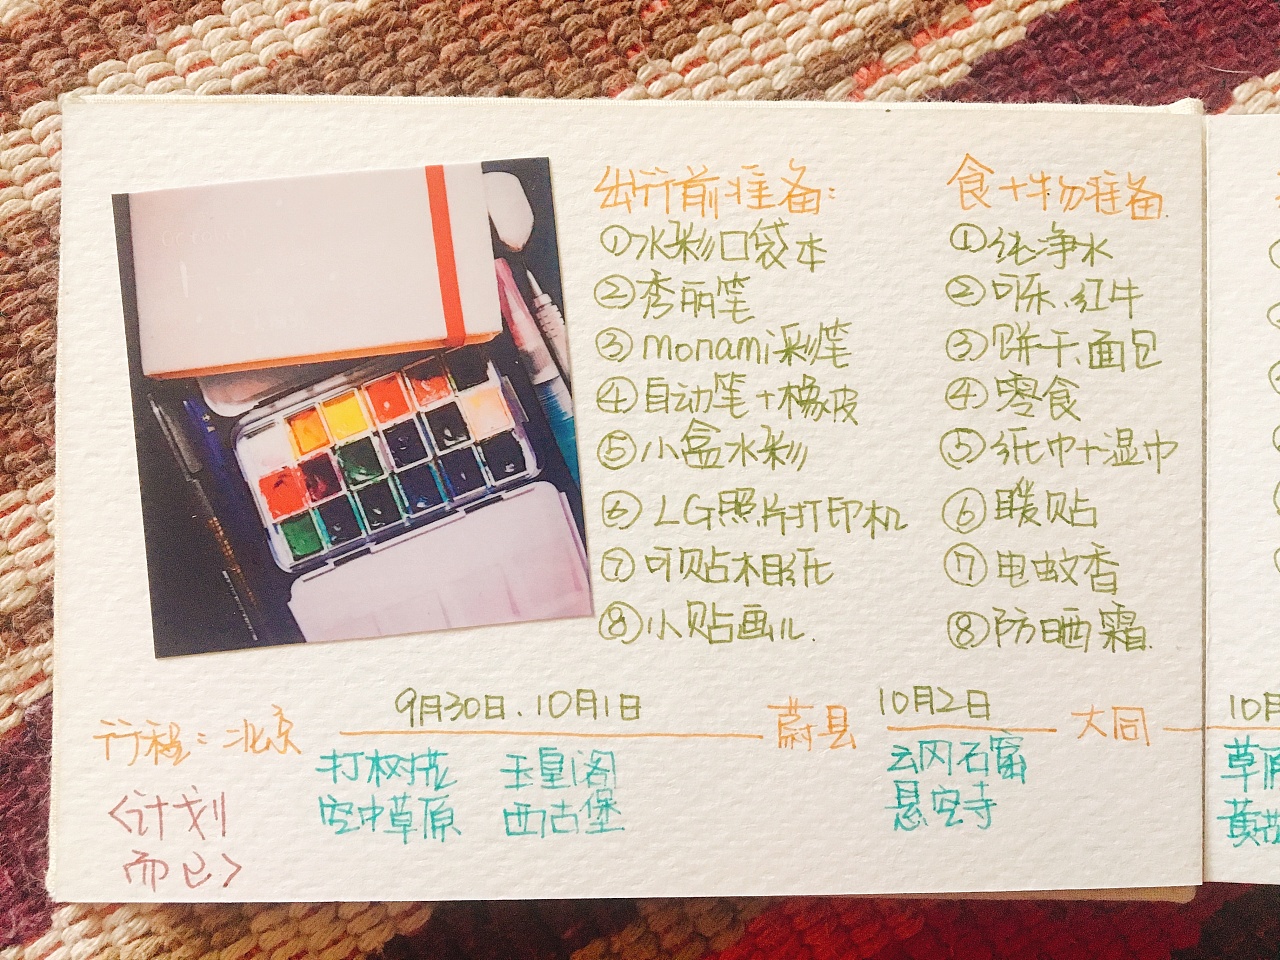 出行前准备:
①水彩口袋本
②秀丽笔
③monami彩笔
④自动笔+橡皮
⑤小盒水彩
⑥LG照片打印机
⑦可贴相纸
⑧小贴画儿.
食+物准备
①纯净水
②可乐、红牛
③饼干、面包
④零食
⑤纸巾+湿巾
⑥暖贴
⑦电蚊香
⑧防晒霜.
行程:北京 9月30日.10月1日 蔚县 10月2日 大同 10月
打树花 玉皇阁 云冈石窟 草原
空中草原 西古堡 悬空寺 黄
<计划
而已>